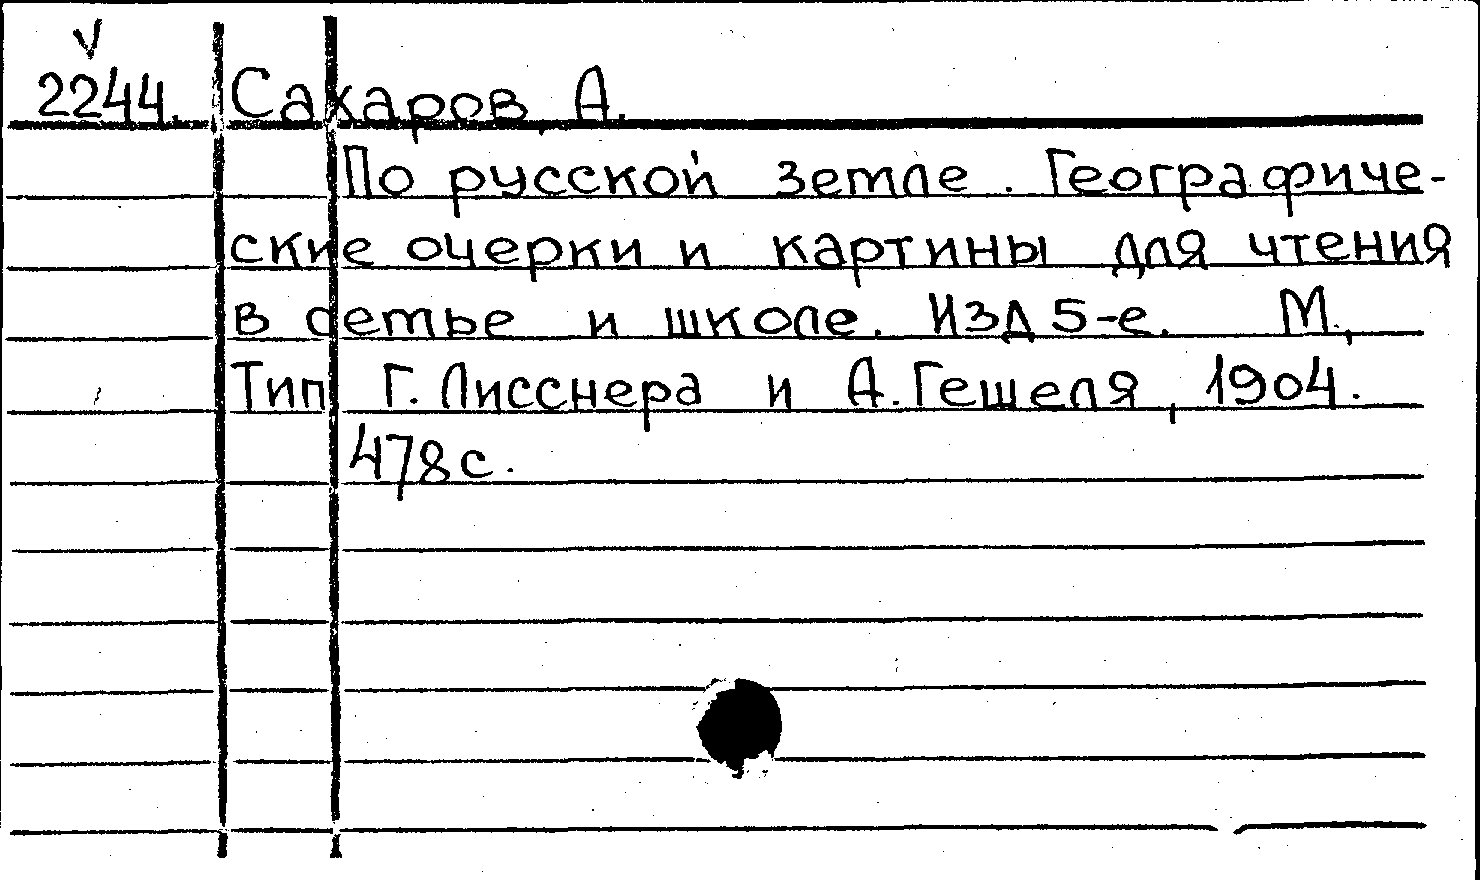 V
2244. Сахаров, А.
По русской земле. Географиче-
ские очерки и картины для чтения
в семье и школе. Изд 5-е. М.,
Тип Г. Лисснера и А. Гешеля, 1904.
478 с.